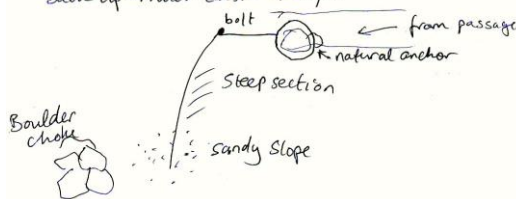 bolt
from passage
natural anchor
Steep section
Boulder
choke
Sandy Slope